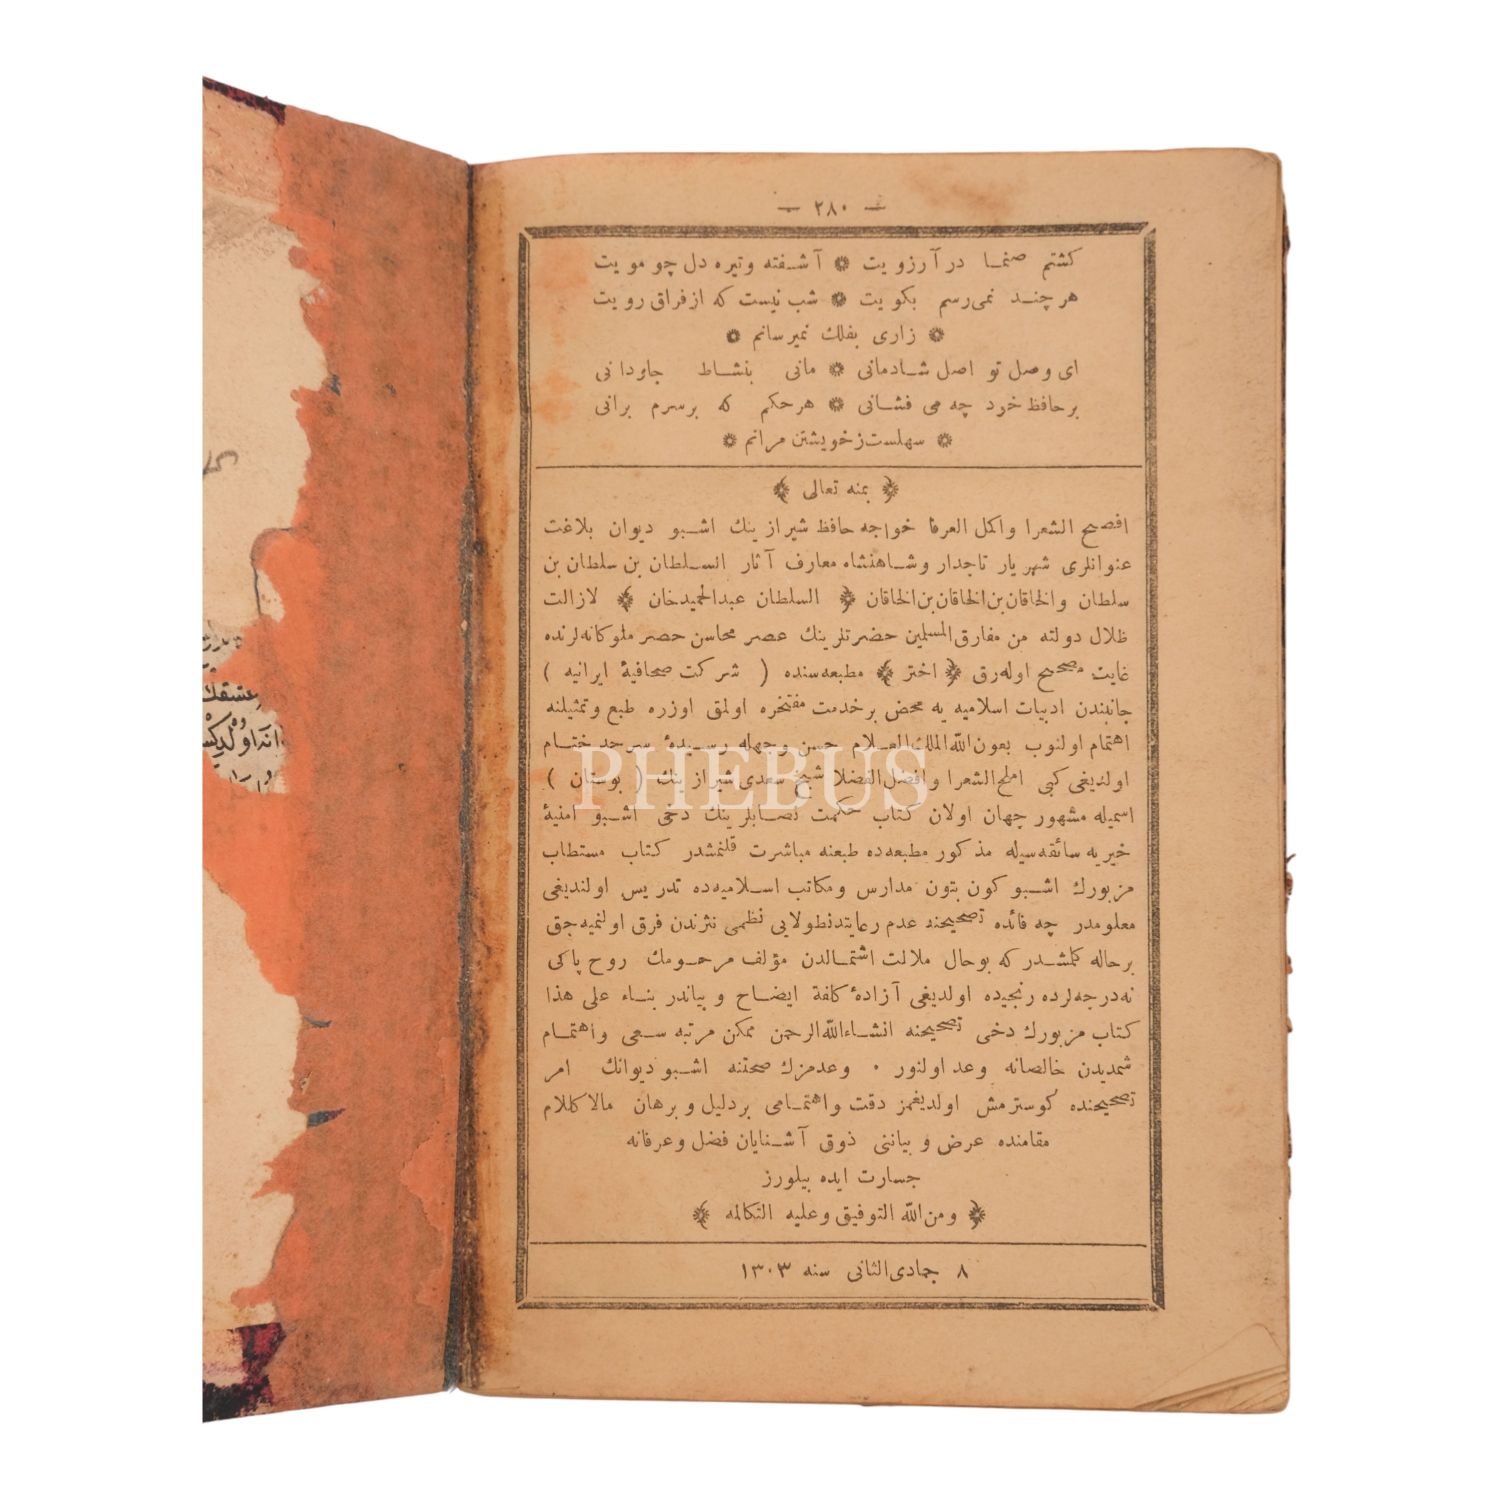 — ٢٨٠ —
كشتم صنما در آرزویت ❋ آشفته وتیره دل چو مویت
هرچند نمی‌رسم بكویت ❋ شب نیست كه از فراق رویت
❋ زاری بفلك نمیرسانم ❋
ای وصل تو اصل شادمانی ❋ مانی بنشاط جاودانی
بر حافظ خرد چه می فشانی ❋ هر حكم كه بر سرم برانی
❋ سهلست ز خویشتن مرانم ❋
﴿ بمنه تعالی ﴾
افصح الشعرا واكمل العرفا خواجه حافظ شیرازینك اشبو دیوان بلاغت
عنوانلری شهریار تاجدار وشاهنشاه معارف آثار السلطان بن سلطان بن
سلطان والخاقان بن الخاقان بن الخاقان ﴿ السلطان عبدالحمیدخان ﴾ لازالت
ظلال دولته من مفارق المسلمین حضرتلرینك عصر محاسن حصر ملوكانه‌لرنده
غایت مصحح اوله‌رق ﴿ اختر ﴾ مطبعه‌سنده ( شركت صحافیهٔ ایرانیه )
جانبندن ادبیات اسلامیه یه محض بر خدمت مفتخره اولمق اوزره طبع وتمثیلنه
اهتمام اولنوب بعون الله الملك العلام حسن وجهله رسیدهٔ سرحد ختام
اولدیغی كبی املح الشعرا وافضل الفضلا شیخ سعدی شیرازینك ( بوستان )
اسمیله مشهور جهان اولان كتاب حكمت نصابلرینك دخی اشبو امنیهٔ
خیریه سائقه‌سیله مذكور مطبعه‌ده طبعنه مباشرت قلنمشدر كتاب مستطاب
مزبورك اشبو كون بتون مدارس ومكاتب اسلامیه‌ده تدریس اولندیغی
معلومدر چه فائده تصحیحنه عدم رعایتدنطولایی نظمی نثرندن فرق اولنمیه‌جق
برحاله كلمشدر كه بوحال ملالت اشتمالدن مؤلف مرحومك روح پاكی
نه‌درجه‌لرده رنجیده اولدیغی آزادهٔ كافهٔ ایضاح و بیاندر بناء علی هذا
كتاب مزبورك دخی تصحیحنه انشاءالله الرحمن ممكن مرتبه سعی واهتمام
شمدیدن خالصانه وعد اولنور ۰ وعدمزك صحتنه اشبو دیوانك امر
تصحیحنده كوسترمش اولدیغمز دقت واهتمامی بر دلیل و برهان مالاكلام
مقامنده عرض و بیاننی ذوق آشنایان فضل وعرفانه
جسارت ایده بیلورز
﴿ ومن الله التوفیق وعلیه التكلانه ﴾
٨ جمادی الثانی سنه ١٣٠٣
عشقك
PHEBUS